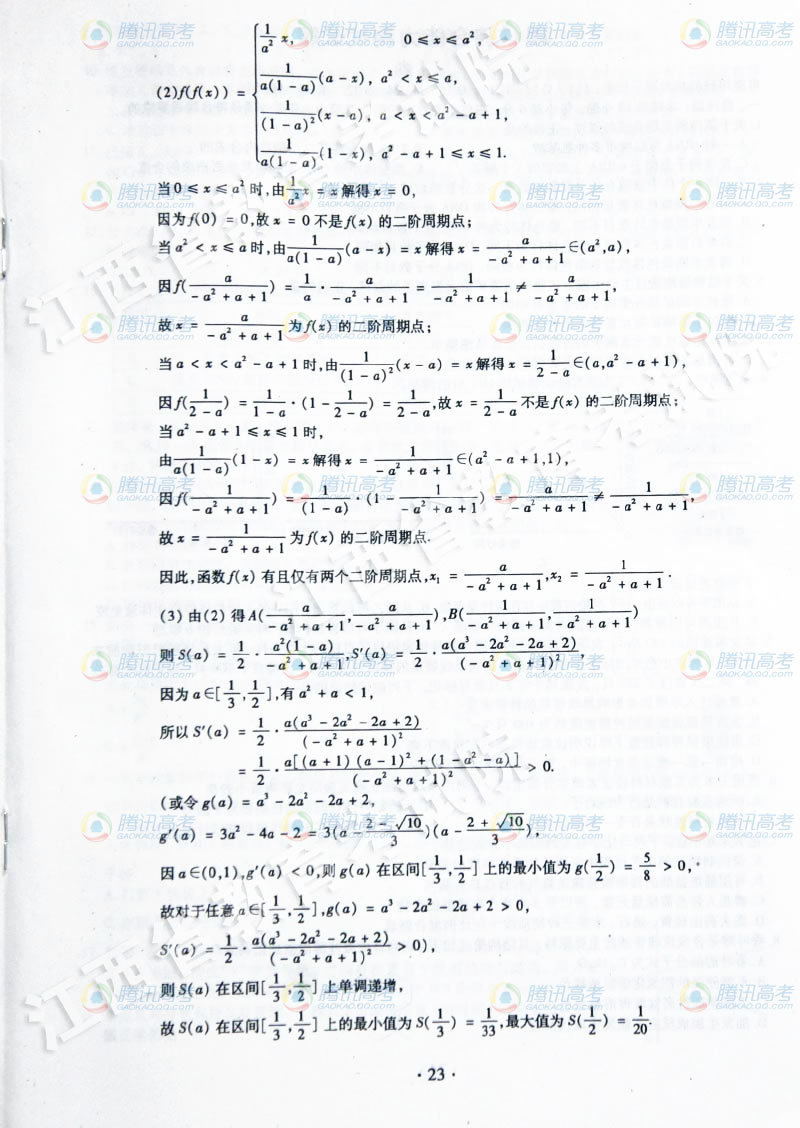 (2)f(f(x)) = { 1/a² x, 0 ≤ x ≤ a²,
1/(a(1 - a)) (a - x), a² < x ≤ a,
1/(1 - a)² (x - a), a < x < a² - a + 1,
1/(a(1 - a)) (1 - x), a² - a + 1 ≤ x ≤ 1.
当 0 ≤ x ≤ a² 时,由 1/a² x = x 解得 x = 0,
因为 f(0) = 0,故 x = 0 不是 f(x) 的二阶周期点;
当 a² < x ≤ a 时,由 1/(a(1 - a)) (a - x) = x 解得 x = a/(-a² + a + 1) ∈(a²,a),
因 f(a/(-a² + a + 1)) = 1/a · a/(-a² + a + 1) = 1/(-a² + a + 1) ≠ a/(-a² + a + 1),
故 x = a/(-a² + a + 1) 为 f(x) 的二阶周期点;
当 a < x < a² - a + 1 时,由 1/(1 - a)² (x - a) = x 解得 x = 1/(2 - a) ∈(a,a² - a + 1),
因 f(1/(2 - a)) = 1/(1 - a) · (1 - 1/(2 - a)) = 1/(2 - a),故 x = 1/(2 - a) 不是 f(x) 的二阶周期点;
当 a² - a + 1 ≤ x ≤ 1 时,
由 1/(a(1 - a)) (1 - x) = x 解得 x = 1/(-a² + a + 1) ∈(a² - a + 1,1),
因 f(1/(-a² + a + 1)) = 1/(1 - a) · (1 - 1/(-a² + a + 1)) = a/(-a² + a + 1) ≠ 1/(-a² + a + 1),
故 x = 1/(-a² + a + 1) 为 f(x) 的二阶周期点.
因此,函数 f(x) 有且仅有两个二阶周期点,x₁ = a/(-a² + a + 1),x₂ = 1/(-a² + a + 1).
(3) 由(2) 得 A(a/(-a² + a + 1),a/(-a² + a + 1)),B(1/(-a² + a + 1),1/(-a² + a + 1))
则 S(a) = 1/2 · a²(1 - a)/(-a² + a + 1),S′(a) = 1/2 · a(a³ - 2a² - 2a + 2)/(-a² + a + 1)²,
因为 a∈[1/3,1/2],有 a² + a < 1,
所以 S′(a) = 1/2 · a(a³ - 2a² - 2a + 2)/(-a² + a + 1)²
= 1/2 · a[(a + 1)(a - 1)² + (1 - a² - a)]/(-a² + a + 1)² > 0.
(或令 g(a) = a³ - 2a² - 2a + 2,
g′(a) = 3a² - 4a - 2 = 3(a - (2 - √10)/3)(a - (2 + √10)/3),
因 a∈(0,1),g′(a) < 0,则 g(a) 在区间[1/3,1/2] 上的最小值为 g(1/2) = 5/8 > 0,
故对于任意 a∈[1/3,1/2],g(a) = a³ - 2a² - 2a + 2 > 0,
S′(a) = 1/2 · a(a³ - 2a² - 2a + 2)/(-a² + a + 1)² > 0),
则 S(a) 在区间[1/3,1/2] 上单调递增,
故 S(a) 在区间[1/3,1/2] 上的最小值为 S(1/3) = 1/33,最大值为 S(1/2) = 1/20.
· 23 ·
腾讯高考
GAOKAO.QQ.COM
江西省教育考试院